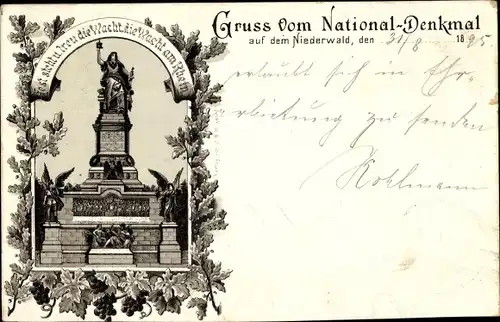 Fest steht u. treu die Wacht, die Wacht am Rhein
Gruss vom National-Denkmal
auf dem Niederwald, den 31/8 1895
erlaubt sich in Ehr-
erbietung zu senden
Kohlmann